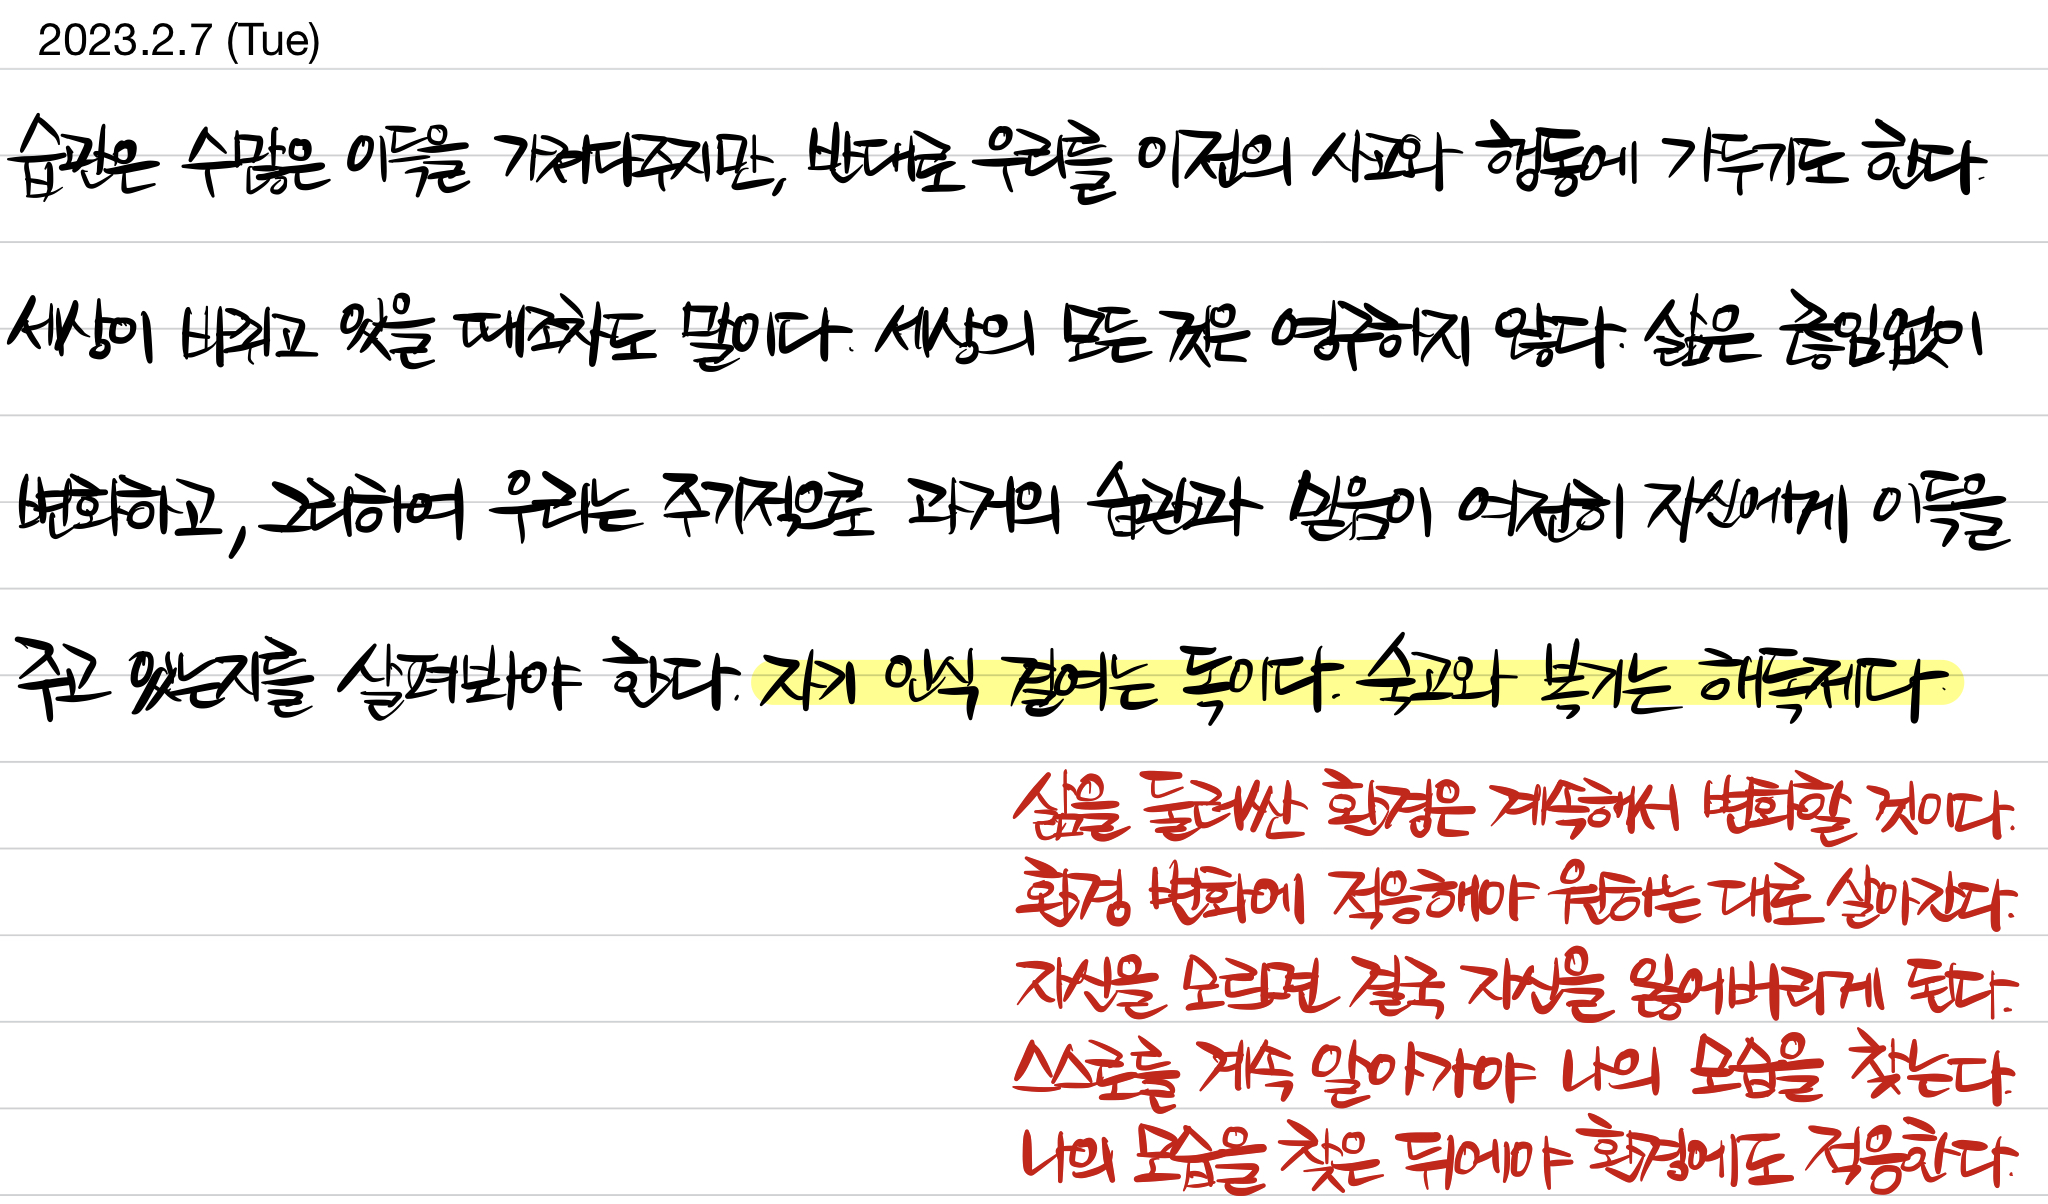 2023.2.7 (Tue)
습관은 수많은 이득을 가져다주지만, 반대로 우리를 이전의 사고와 행동에 가두기도 한다.
세상이 바뀌고 있을 때조차도 말이다. 세상의 모든 것은 영구하지 않다. 삶은 끊임없이
변화하고, 그리하여 우리는 주기적으로 과거의 습관과 믿음이 여전히 자신에게 이득을
주고 있는지를 살펴봐야 한다. 자기 인식 결여는 독이다. 숙고와 복기는 해독제다.
삶을 둘러싼 환경은 계속해서 변화할 것이다.
환경 변화에 적응해야 원하는 대로 살아간다.
자신을 모르면 결국 자신을 잃어버리게 된다.
스스로를 계속 알아가야 나의 모습을 찾는다.
나의 모습을 찾은 뒤에야 환경에도 적응한다.